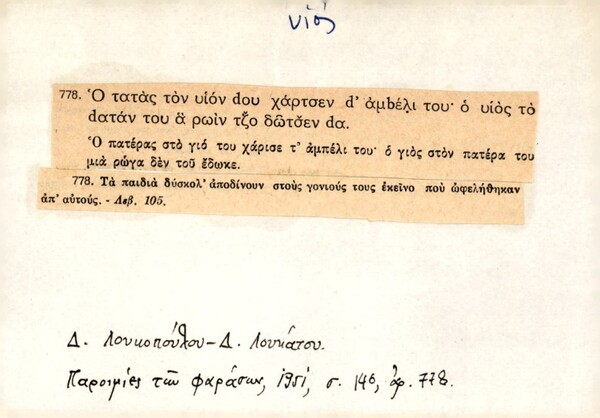 υἱός
778. Ὁ τατὰς τὸν υἱόν dου χάρτσεν d' ἀμbέλι του· ὁ υἱὸς τὸ
dατάν του ἃ ρωὶν τζ̌ο δῶτσ̌εν dα.
Ὁ πατέρας στὸ γιό του χάρισε τ' ἀμπέλι του· ὁ γιὸς στὸν πατέρα του
μιὰ ρώγα δὲν τοῦ ἔδωκε.
778. Τὰ παιδιὰ δύσκολ' ἀποδίνουν στοὺς γονιούς τους ἐκεῖνο ποὺ ὠφελήθηκαν
ἀπ' αὐτούς. - Λεβ. 105.
Δ. Λουκοπούλου - Δ. Λουκάτου.
Παροιμίες τῶν Φαράσων, 1951, σ. 146, ἀρ. 778.